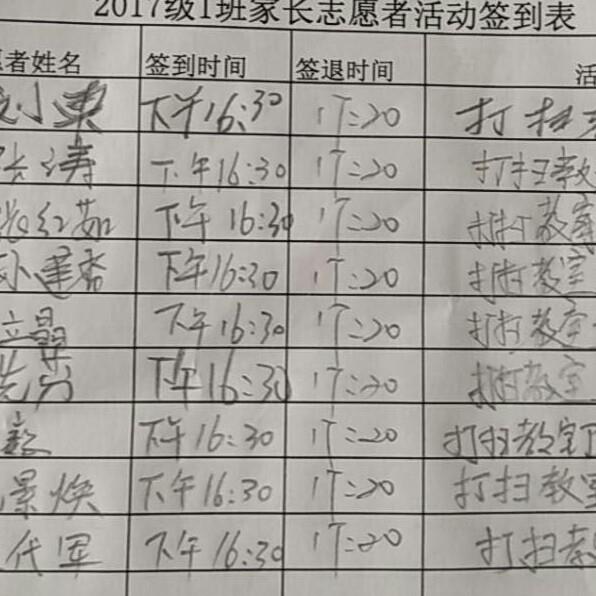 2017级1班家长志愿者活动签到表
愿者姓名 签到时间 签退时间 活
刘东 下午16:30 17:20 打扫
张涛 下午16:30 17:20 打扫教
张红茹 下午16:30 17:20 打扫教室
孙建香 下午16:30 17:20 打扫教室
立最 下午16:30 17:20 打扫教室
下午16:30 17:20 打扫教室
下午16:30 17:20 打扫教室
景焕 下午16:30 17:20 打扫教室
代军 下午16:30 17:20 打扫教